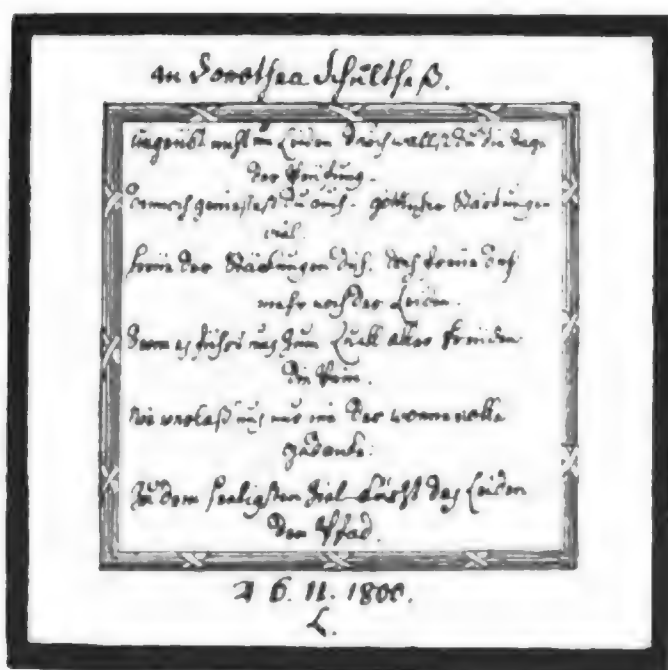 An Dorothea Schultheß.
Ungeübt nicht im Leiden durchwallst du die Tage
der Prüfung.
Dennoch genießest du auch göttlicher Stärkungen
viel.
Freüe der Stärkungen dich, doch freüe dich
mehr noch der Leiden.
Denn es führt uns zum Quell aller Freüden
die Pein.
Nie verlaß uns nur nie der wonnevolle
Gedanke:
Zu dem seeligsten Ziel kürzt das Leiden
den Pfad.
♃ 6. 11. 1800.
L.